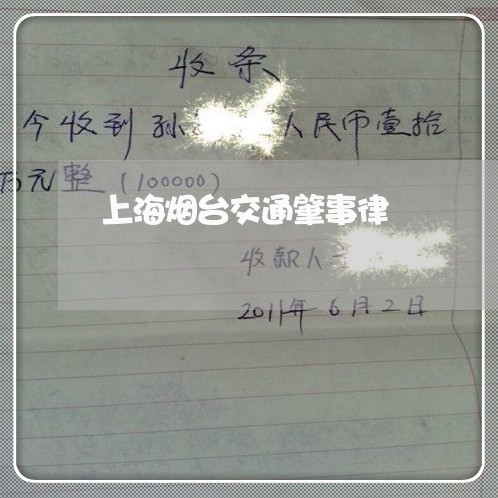 收条
今收到孙 人民币壹拾
万元整（100000）
上海烟台交通肇事律
收款人
2011年6月2日